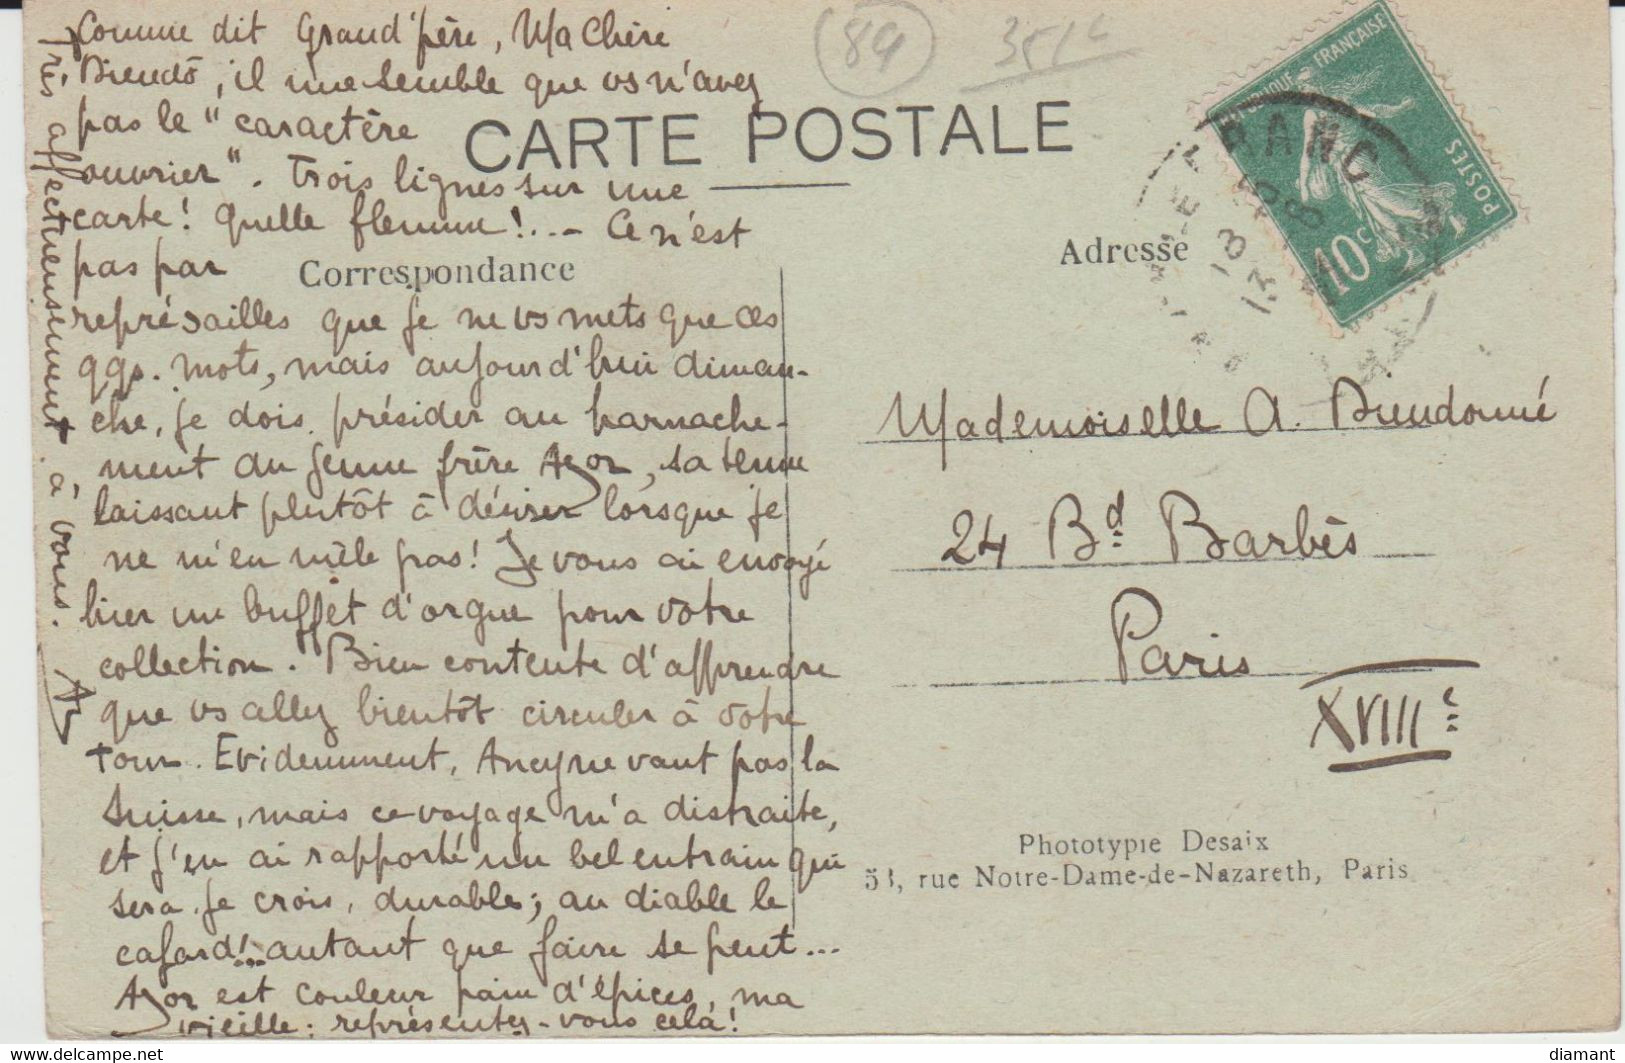 Comme dit Grand'père, Ma Chère
Dieudó, il me semble que vs n'avez
pas le "caractère
ouvrier". Trois lignes sur une
carte! Quelle flemme!... Ce n'est
pas par
représailles que je ne vs mets que ces
qqs. mots, mais aujourd'hui diman-
che, je dois présider au harnache-
ment du jeune frère Azor, sa tenue
laissant plutôt à désirer lorsque je
ne m'en mêle pas! Je vous ai envoyé
hier un buffet d'orgue pour votre
collection. Bien contente d'apprendre
que vs allez bientôt circuler à votre
tour. Evidemment, Ancy ne vaut pas la
Suisse, mais ce voyage m'a distraite,
et j'en ai rapporté un bel entrain qui
sera je crois, durable; au diable le
cafard!... autant que faire se peut...
Azor est couleur pain d'épices, ma
vieille; représentez-vous cela!
Très affectueusement à vous.
Az
CARTE POSTALE
Correspondance
Adresse
89
35 1c
RÉPUBLIQUE FRANÇAISE
POSTES
10c
Mademoiselle A. Dieudonné
24 Bd. Barbès
Paris
XVIIIe
Phototypie Desaix
53, rue Notre-Dame-de-Nazareth, Paris
www.delcampe.net
diamant